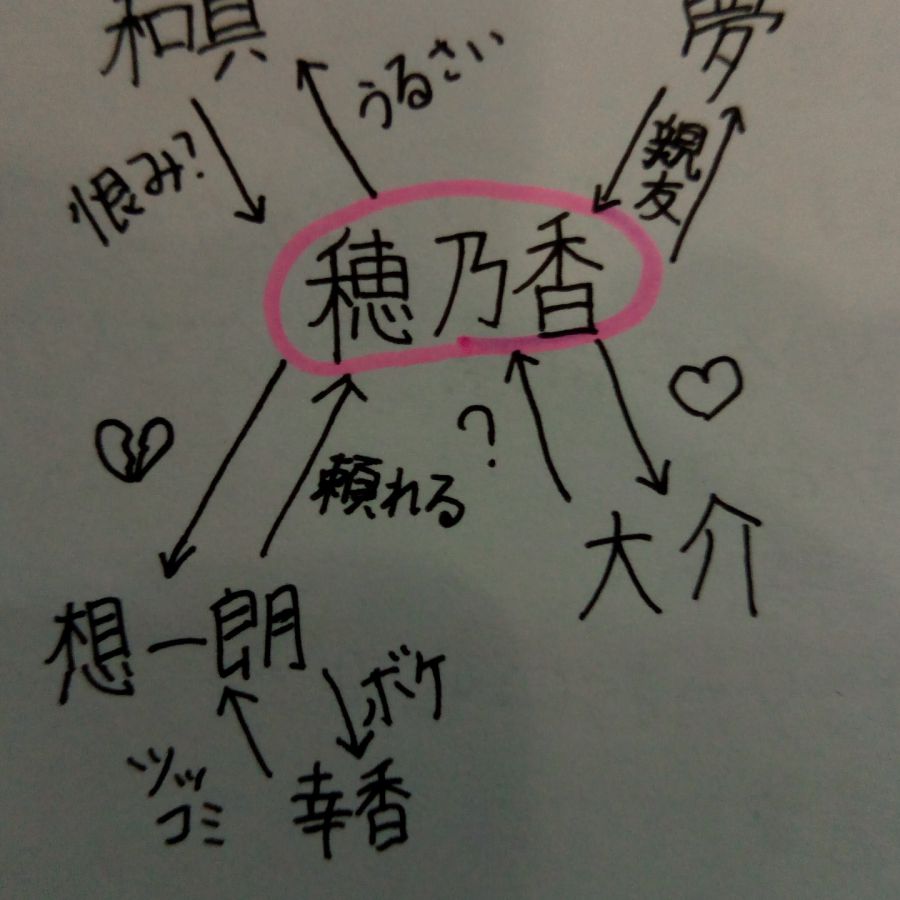 和真 夢
うるさい
恨み?
親友
穂乃香
?
頼れる
大介
想一朗
ボケ
ツッコミ
幸香